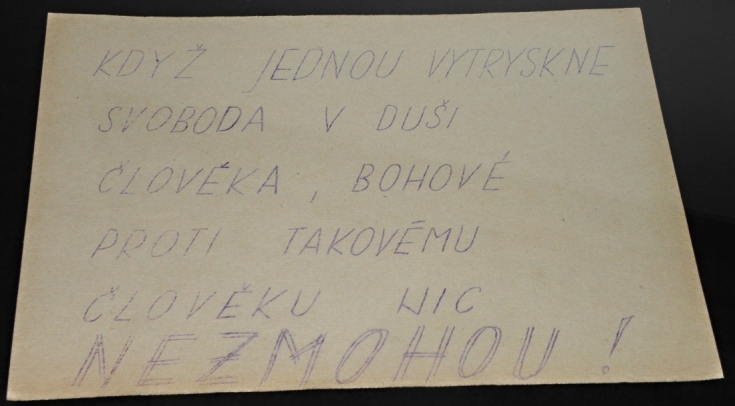 KDYŽ JEDNOU VYTRYSKNE
SVOBODA V DUŠI
ČLOVĚKA, BOHOVÉ
PROTI TAKOVÉMU
ČLOVĚKU NIC
NEZMOHOU!